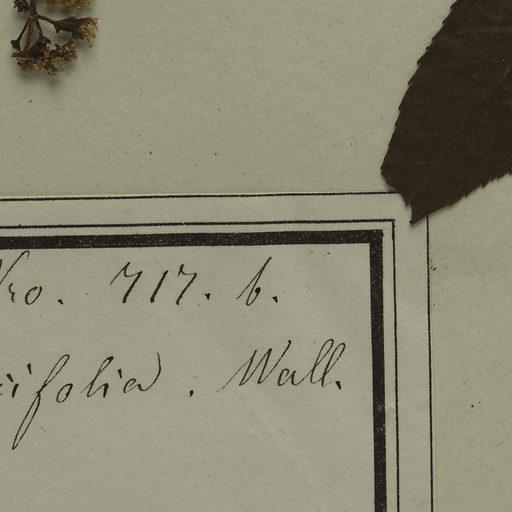 Nro. 717. b.
ifolia. Wall.